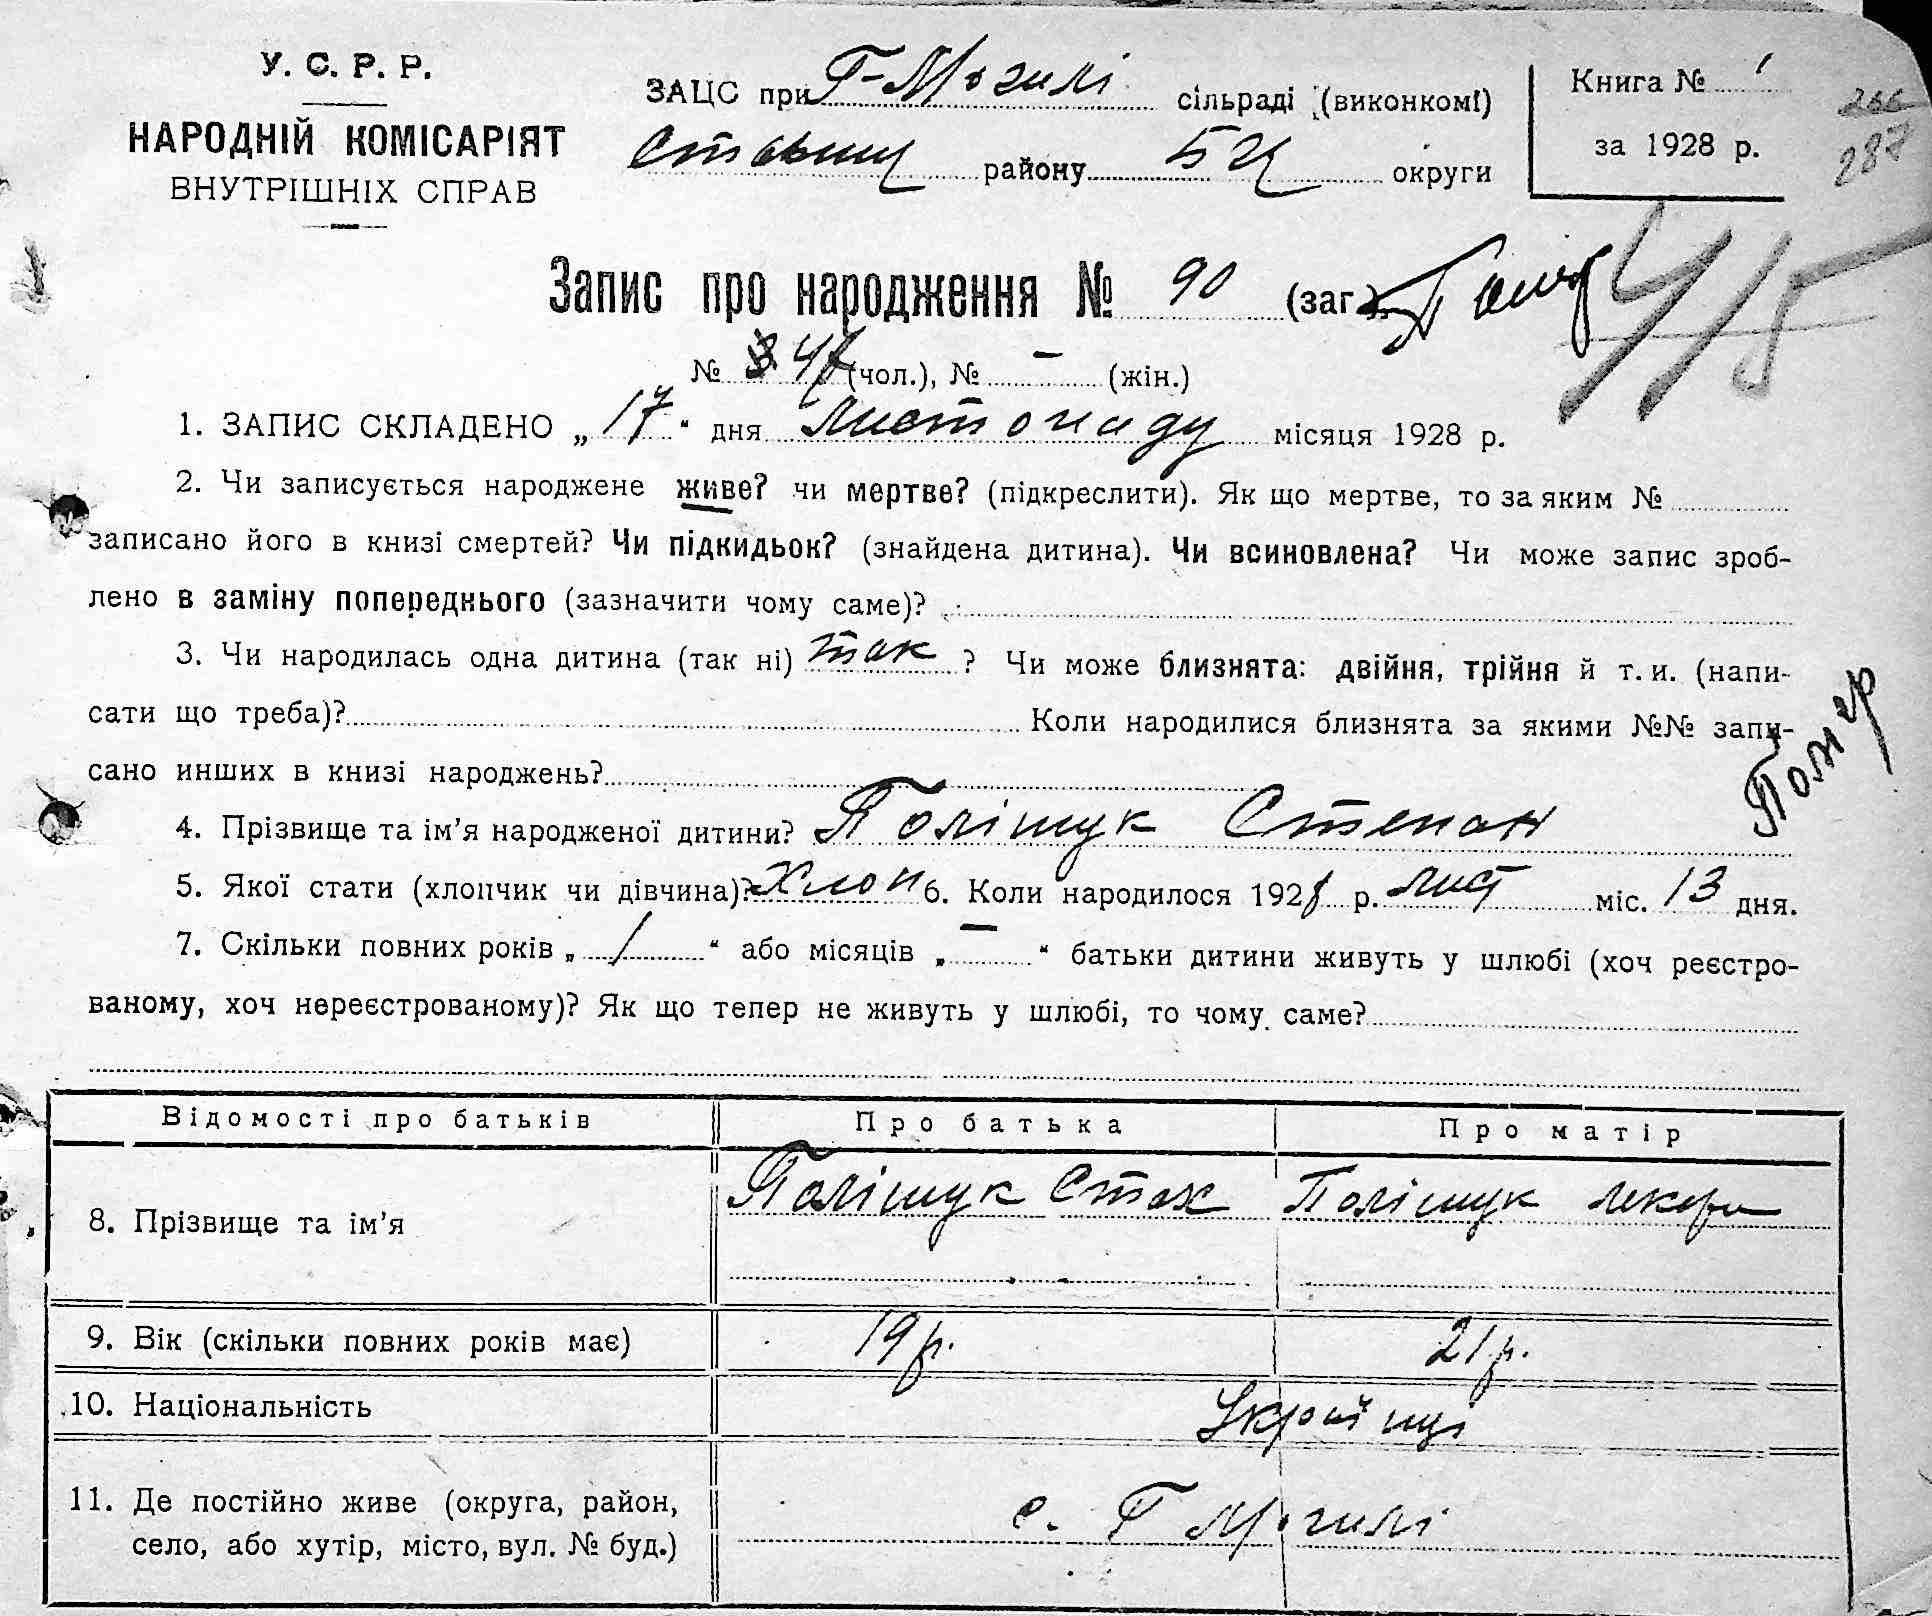 У. С. Р. Р.
НАРОДНІЙ КОМІСАРІЯТ
ВНУТРІШНІХ СПРАВ
ЗАЦС при Г-Могилі сільраді (виконкомі)
Ставищ району БЦ округи
Книга № 1
за 1928 р.
287
Запис про народження № 90 (заг.)
115
№ 47 (чол.), № – (жін.)
1. ЗАПИС СКЛАДЕНО „ 17 “ дня листопаду місяця 1928 р.
2. Чи записується народжене живе? чи мертве? (підкреслити). Як що мертве, то за яким №
записано його в книзі смертей? Чи підкидьок? (знайдена дитина). Чи всиновлена? Чи може запис зроб-
лено в заміну попереднього (зазначити чому саме)?
3. Чи народилась одна дитина (так ні) так ? Чи може близнята: двійня, трійня й т. и. (напи-
сати що треба)? Коли народилися близнята за якими №№ запи-
сано инших в книзі народжень?
Помер
4. Прізвище та ім’я народженої дитини? Поліщук Степан
5. Якої стати (хлопчик чи дівчина)? Хлоп 6. Коли народилося 1928 р. лист міс. 13 дня.
7. Скільки повних років „ 1 “ або місяців „ – “ батьки дитини живуть у шлюбі (хоч реєстро-
ваному, хоч нереєстрованому)? Як що тепер не живуть у шлюбі, то чому саме?
Відомості про батьків Про батька Про матір
8. Прізвище та ім’я Поліщук Стах Поліщук
9. Вік (скільки повних років має) 19 р. 21 р.
10. Національність Українці
11. Де постійно живе (округа, район,
село, або хутір, місто, вул. № буд.) с. Г Могилі